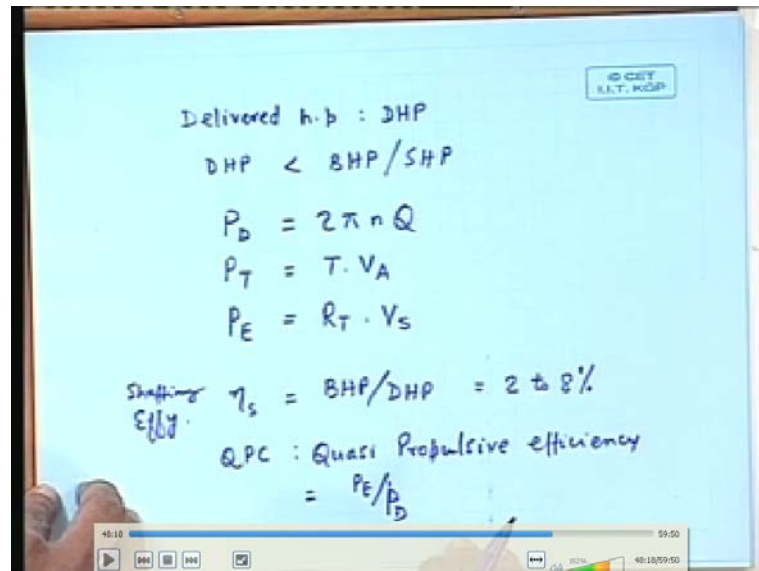 © CET
I.I.T. KGP
Delivered h.p : DHP
DHP < BHP/SHP
P_D = 2πnQ
P_T = T. V_A
P_E = R_T . V_S
Shafting Effy. η_s = BHP/DHP = 2 to 8%
QPC : Quasi Propulsive efficiency
= P_E/P_D
48:10
59:50
48:18/59:50